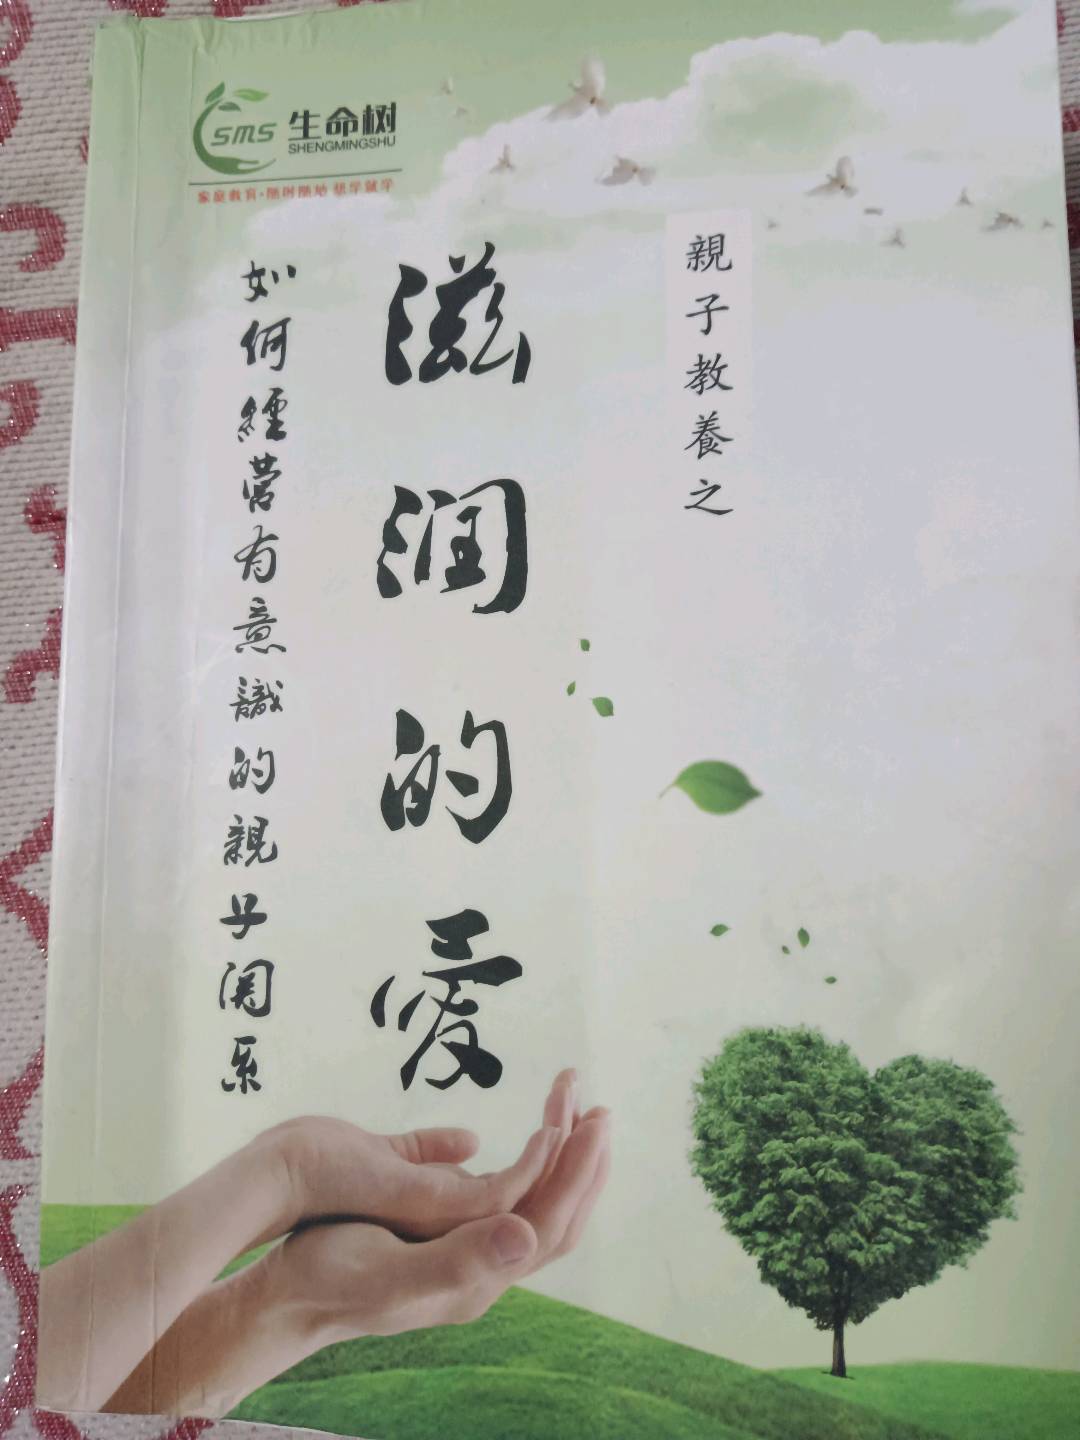 sms 生命树
SHENGMINGSHU
家庭教育·随时随地 想学就学
親子教養之
滋润的愛
如何經营有意識的親子関系